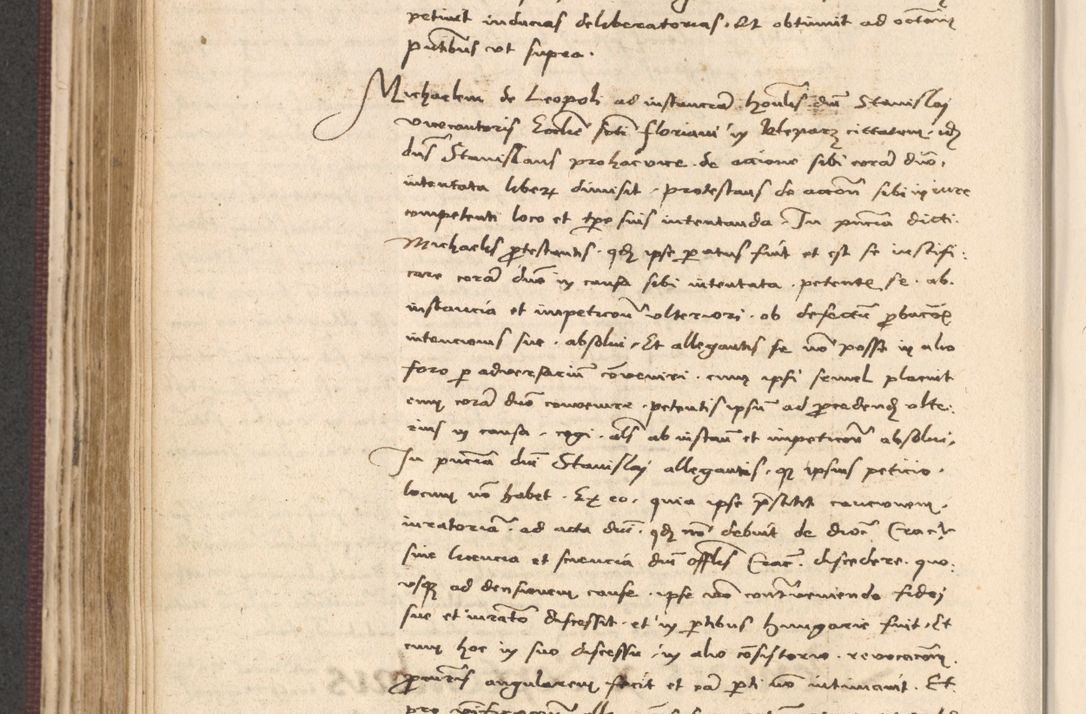 petiuit inducias deliberatorias. Et obtinuit ad octavam
partibus ut supra.
Michaelem de Leopoli ad instanciam honorabilis domini Stanislai
vicecantoris Ecclesie sancti Floriani in Kleparz cittatum, idem
dominus Stanislaus pro hac vice de accione sibi coram domino
intentata liberum dimisit, protestans de accione sibi in iure
competenti loco et tempore suis intentanda. In presencia dicti
Michaelis protestantis, quod ipse paratus fuit et est se iustifi:
care coram domino in causa sibi intentata, petentem se ab
instancia et impeticione ulteriori ob defectum probacionis
intencionis sue absolui, Et allegantis se non posse in alio
foro per adversarium conveniri, cum ipsi semel placuit
eum coram domino convenire, petentis ipsum ad procedendum ulte:
rius in causa, cogi, alias ab instancia et impeticione absolui,
In presencia domini Stanislai allegantis, quod ipsius peticio
locum non habet. Ex eo, quia ipse prestitit caucionem
iuratoriam ad acta domini, quod non debuit de diocesi Cracoviensi
sine licencia et sciencia domini officialis Cracoviensis discedere quo:
usque ad decisionem cause, ipse vero contraveniendo fidei
sue et iuramento discessit et in partibus Hungarie fuit, Et
cum hoc in suo discessu in alio consistorio revocacionem
procuratoris angularem fecit et eam parti non intimauit. Et